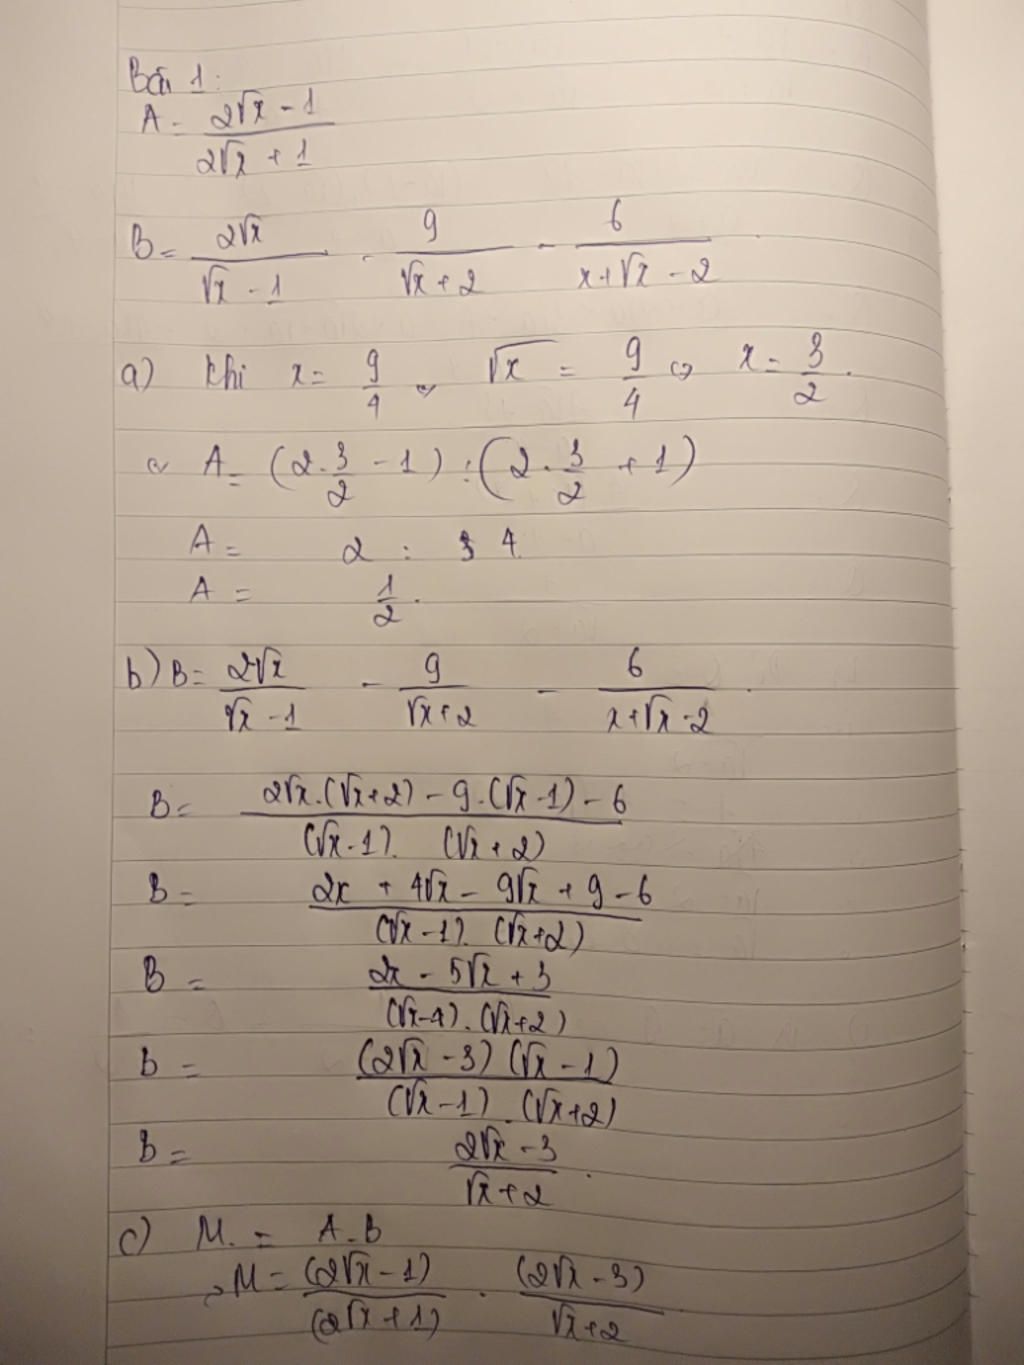 Bài 1:
A = (2√x - 1)/(2√x + 1)
B = 2√x/(√x - 1) - 9/(√x + 2) - 6/(x + √x - 2)
a) Khi x = 9/4 ⇔ √x = 9/4 ⇔ x = 3/2.
⇔ A = (2.3/2 - 1) : (2.3/2 + 1)
A = 2 : 4
A = 1/2.
b) B = 2√x/(√x - 1) - 9/(√x + 2) - 6/(x + √x - 2).
B = (2√x.(√x + 2) - 9.(√x - 1) - 6)/((√x - 1).(√x + 2))
B = (2x + 4√x - 9√x + 9 - 6)/((√x - 1).(√x + 2))
B = (2x - 5√x + 3)/((√x - 1).(√x + 2))
B = ((2√x - 3)(√x - 1))/((√x - 1).(√x + 2))
B = (2√x - 3)/(√x + 2).
c) M = A.B
M = (2√x - 1)/(2√x + 1) . (2√x - 3)/(√x + 2)